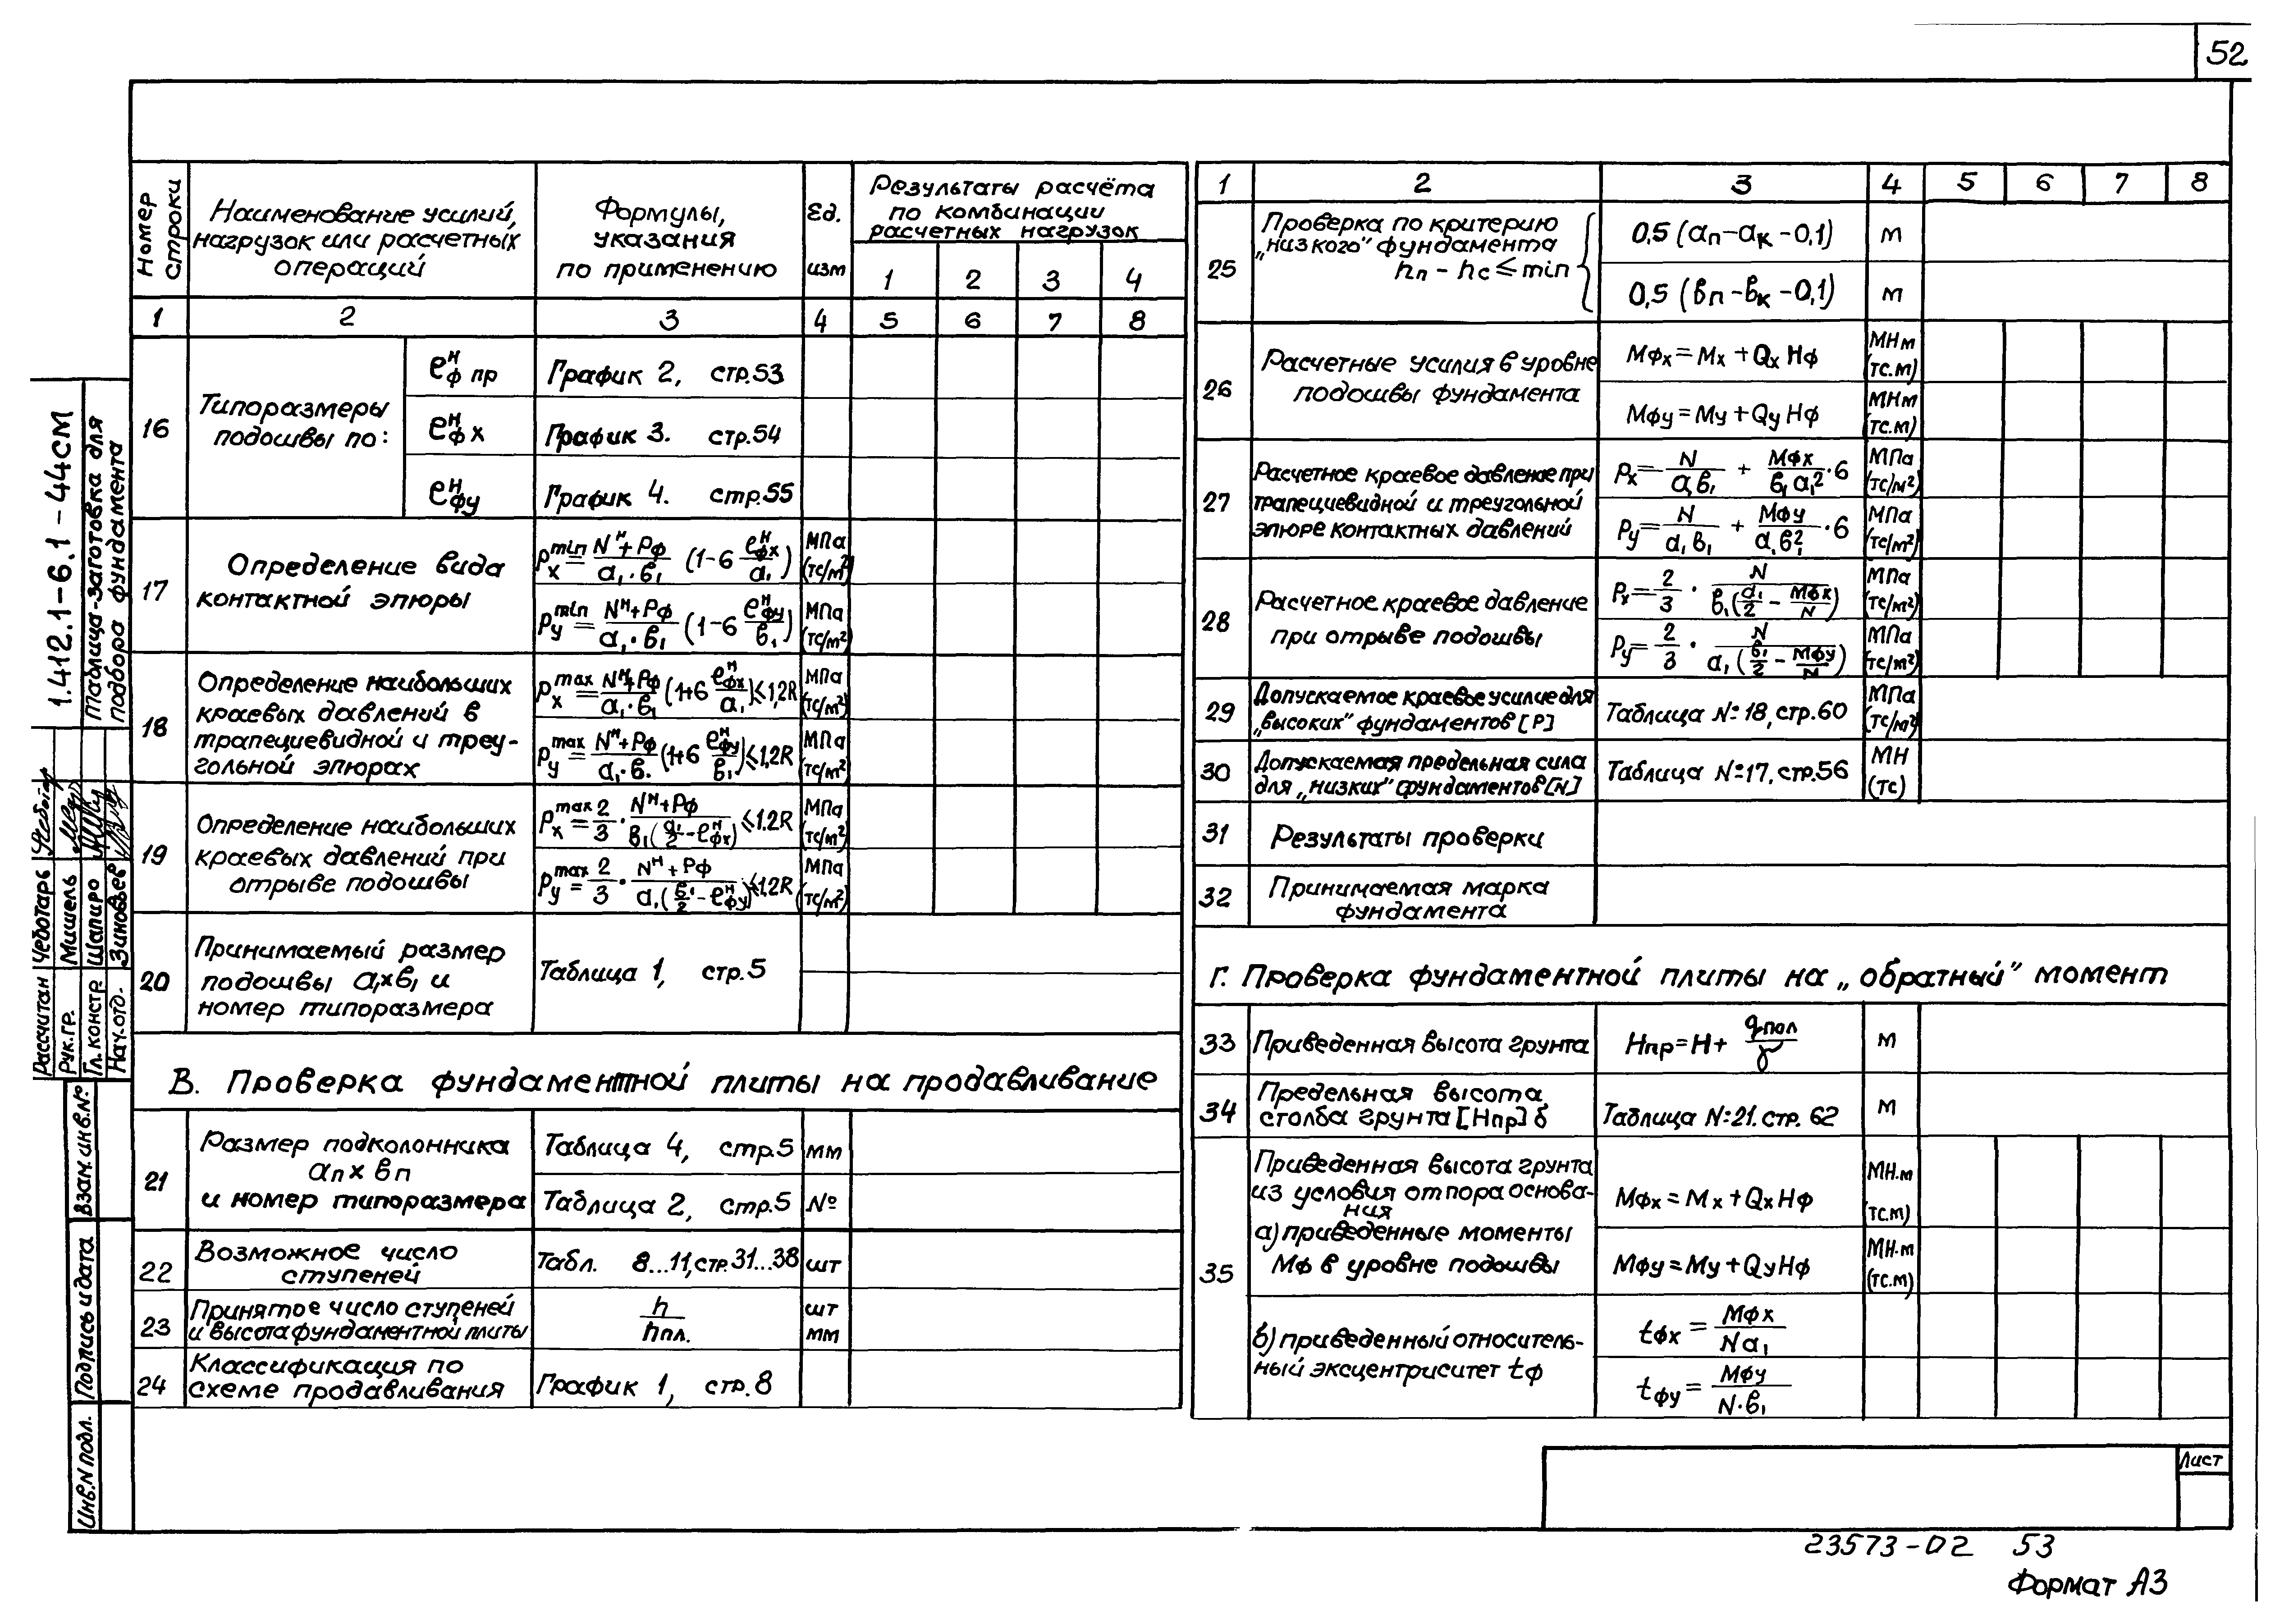 52
Номер строки
Наименование усилий, нагрузок или расчетных операций
Формулы, указания по применению
Ед. изм
Результаты расчёта по комбинации расчетных нагрузок
1 2 3 4
1 2 3 4 5 6 7 8
16 Типоразмеры подошвы по:
eᴴф пр График 2, стр.53
eᴴфх График 3. стр.54
eᴴфу График 4. стр.55
17 Определение вида контактной эпюры
Pₓ min = (Nᴴ+Pф)/(a₁·в₁) (1-6 eᴴфх/a₁) МПа (тс/м²)
Pу min = (Nᴴ+Pф)/(a₁·в₁) (1-6 eᴴфу/в₁) МПа (тс/м²)
18 Определение наибольших краевых давлений в трапециевидной и треугольной эпюрах
Pₓ max = (Nᴴ+Pф)/(a₁·в₁) (1+6 eᴴфх/a₁) ⩽1,2R МПа (тс/м²)
Pу max = (Nᴴ+Pф)/(a₁·в.) (1+6 eᴴфу/в₁) ⩽1,2R МПа (тс/м²)
19 Определение наибольших краевых давлений при отрыве подошвы
Pₓ max = 2/3 · (Nᴴ+Pф)/(в₁(a₁/2-eᴴфх)) ⩽1.2R МПа (тс/м²)
Pу max = 2/3 · (Nᴴ+Pф)/(a₁(в₁/2-eᴴфу)) ⩽1.2R МПа (тс/м²)
20 Принимаемый размер подошвы a₁×в₁ и номер типоразмера
Таблица 1, стр.5
В. Проверка фундаментной плиты на продавливание
21 Размер подколонника aп х вп и номер типоразмера
Таблица 4, стр.5 мм
Таблица 2, стр.5 №
22 Возможное число ступеней
Табл. 8...11, стр.31...38 шт
23 Принятое число ступеней и высота фундаментной плиты
h/hпл. шт мм
24 Классификация по схеме продавливания
График 1, стр.8
1 2 3 4 5 6 7 8
25 Проверка по критерию „низкого” фундамента hп - hс ⩽ min
0,5 (aп-aк-0,1) м
0,5 (вп-вк-0,1) м
26 Расчетные усилия в уровне подошвы фундамента
Мфх=Мх+QхНф МНм (тс.м)
Мфу=Му+QуНф МНм (тс.м)
27 Расчетное краевое давление при трапециевидной и треугольной эпюре контактных давлений
Pх= N/(a₁в₁) + Мфх/(в₁a₁²)·6 МПа (тс/м²)
Pу= N/(a₁в₁) + Мфу/(a₁в₁²)·6 МПа (тс/м²)
28 Расчетное краевое давление при отрыве подошвы
Pх= 2/3 · N/(в₁(a₁/2 - Мфх/N)) МПа (тс/м²)
Pу= 2/3 · N/(a₁(в₁/2 - Мфу/N)) МПа (тс/м²)
29 Допускаемое краевое усилие для „высоких” фундаментов [Р]
Таблица №18, стр.60 МПа (тс/м²)
30 Допускаемая предельная сила для „низких” фундаментов [N]
Таблица №17, стр.56 МН (тс)
31 Результаты проверки
32 Принимаемая марка фундамента
Г. Проверка фундаментной плиты на „обратный” момент
33 Приведенная высота грунта
Нпр=Н+ qпол/γ м
34 Предельная высота столба грунта [Нпр] б
Таблица №21. стр. 62 м
35 Приведенная высота грунта из условия отпора основания
а) приведенные моменты Мф в уровне подошвы
Мфх = Мх+QхНф МН.м (тс.м)
Мфу=Му+QуНф МН.м (тс.м)
б) приведенный относительный эксцентриситет tф
tфх = Мфх/Na₁
tфу = Мфу/N·в₁
Лист
23573-02 53
Формат А3
1.412.1-6.1-44СМ
Таблица-заготовка для подбора фундамента
Рассчитан Чеботарь
Рук.гр. Мишель
Гл. констр Шапиро
Нач.отд. Зиновьев
Взам.инв.№
Подпись и дата
Инв.N подл.